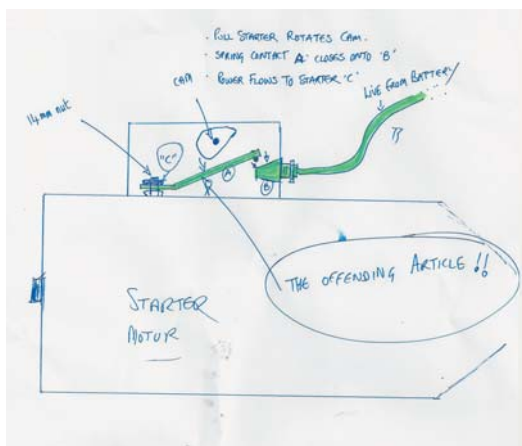 · PULL STARTER ROTATES CAM.
· SPRING CONTACT A CLOSES ONTO 'B'
· POWER FLOWS TO STARTER 'C'
CAM
LIVE FROM BATTERY
14mm nut
"C"
A
B
THE OFFENDING ARTICLE !!
STARTER
MOTUR